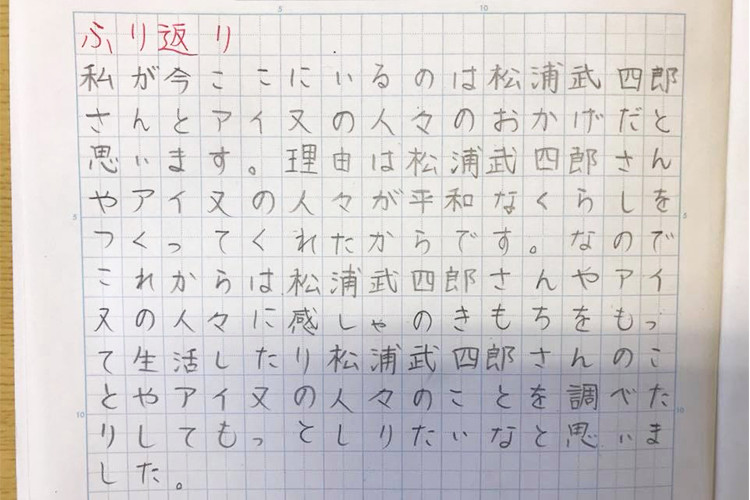 5 10
ふり返り
私が今ここにいるのは松浦武四郎
さんとアイヌの人々のおかげだと
思います。理由は松浦武四郎さん
やアイヌの人々が平和なくらしを
5 つくってくれたからです。なので 5
これからは松浦武四郎さんやアイ
ヌの人々に感しゃのきもちをもっ
て生活したり松浦武四郎さんのこ
とやアイヌの人々のことを調べた
10 りしてもっとしりたいなと思いま 10
した。